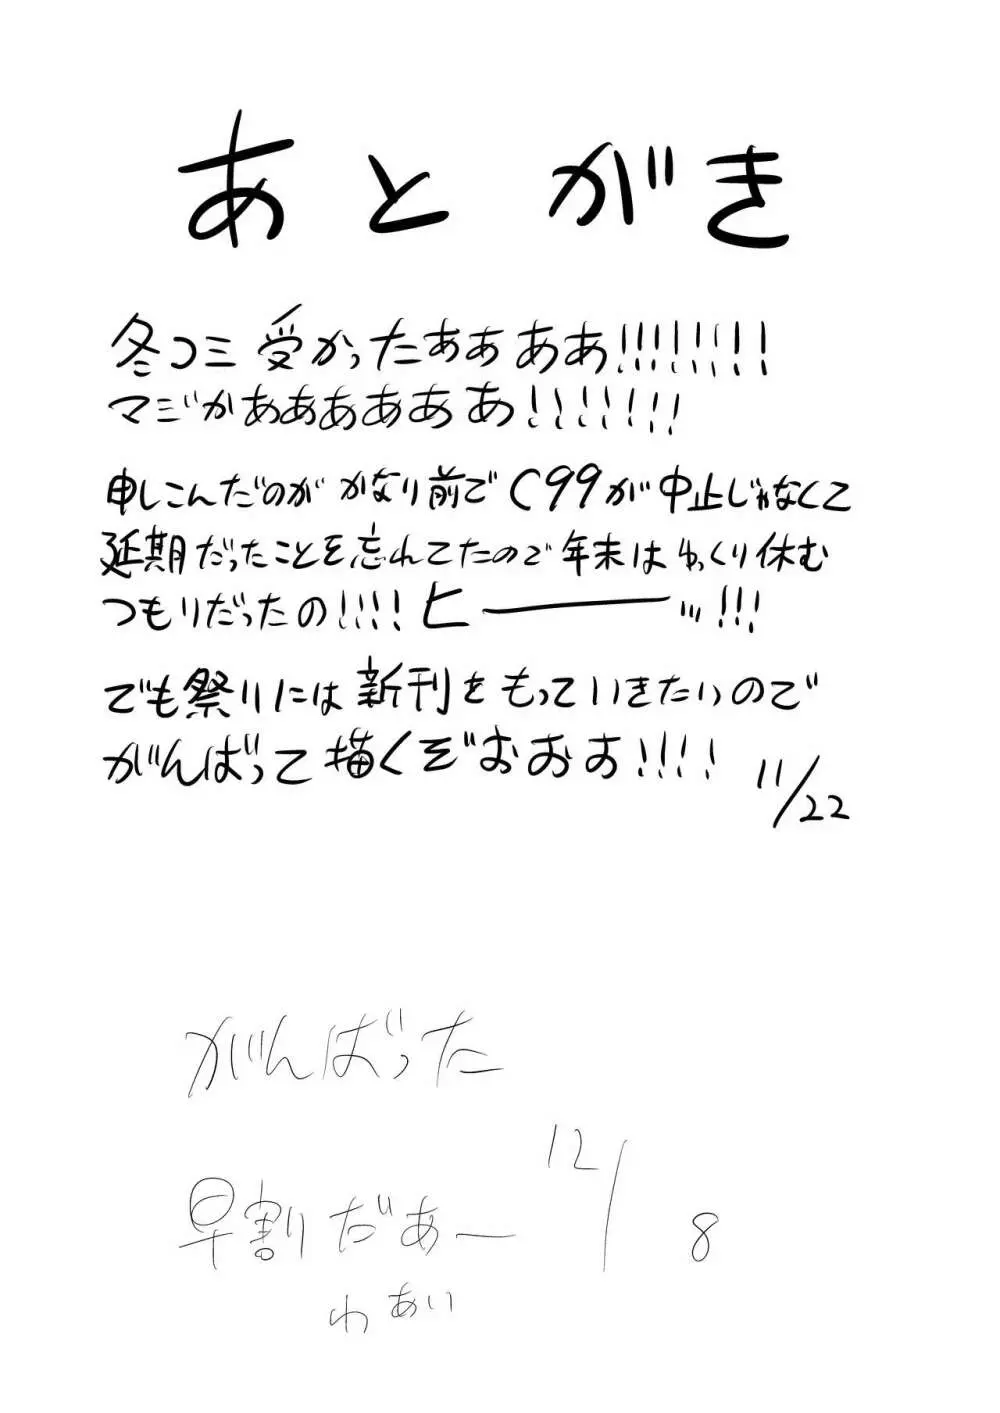 あとがき
冬コミ受かったぁぁああ!!!!!!!!
マジかあああああぁ!!!!!!!
申しこんだのがかなり前でC99が中止じゃなくて
延期だったことを忘れてたので年末はゆっくり休む
つもりだったの!!!!ヒーーッ!!!
でも祭りには新刊をもっていきたいので
がんばって描くぞおおお!!!!
11/22
がんばった
12/8
早割だあー
わあい